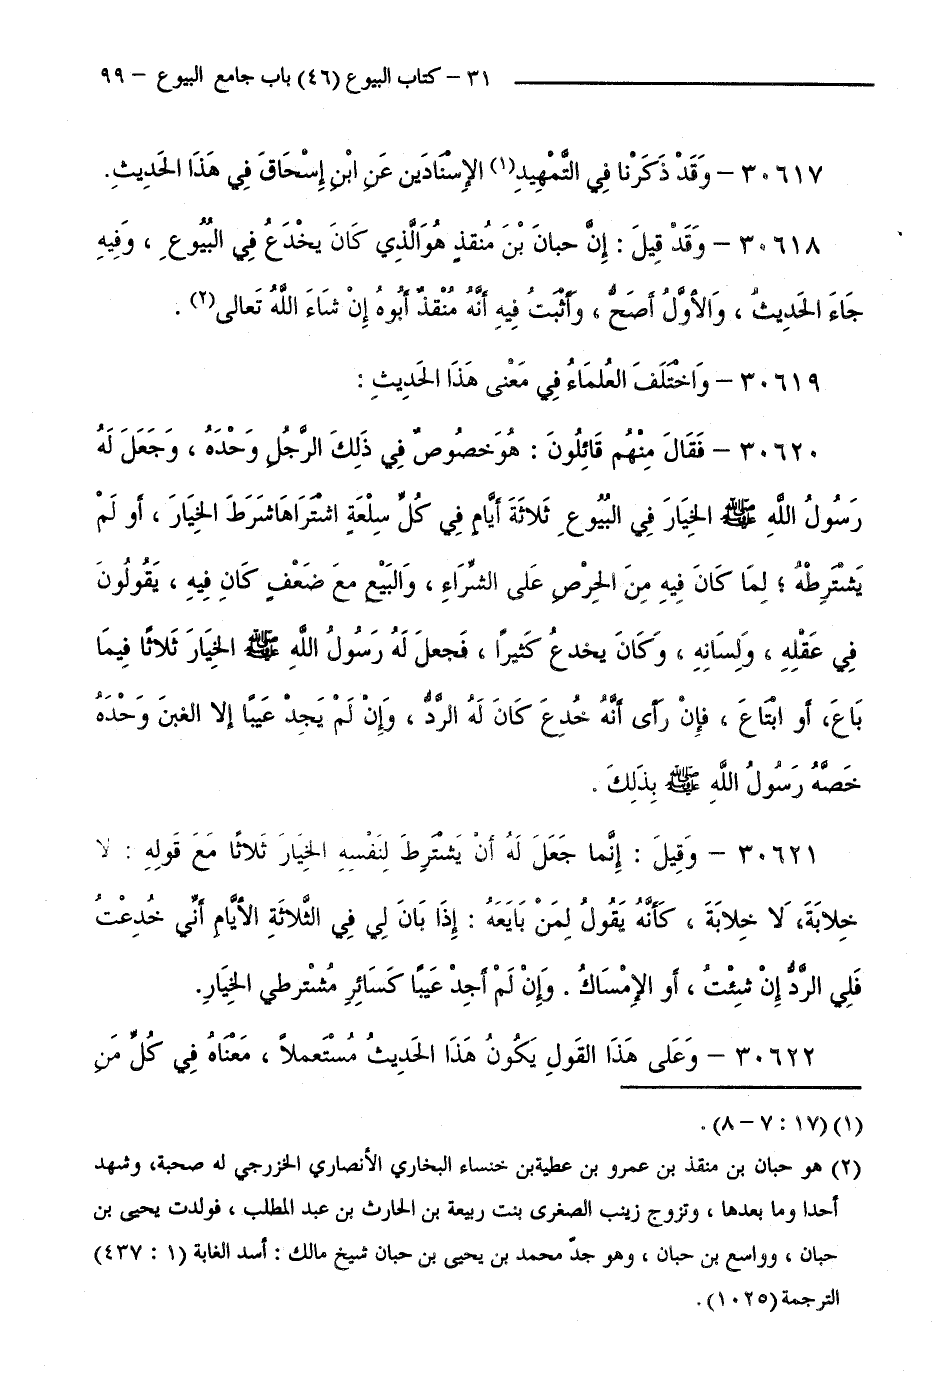 ٣١ – كتاب البيوع (٤٦) باب جامع البيوع – ٩٩
٣٠٦١٧ – وَقَدْ ذَكَرْنا فِي التَّمْهِيدِ(١) الإِسْنَادَين عَنِ ابْنِ إِسْحَاقَ فِي هَذَا الحَدِيثِ.
٣٠٦١٨ – وَقَدْ قِيلَ : إِنَّ حبانَ بْنَ مُنقذٍ هُوَالَّذِي كَانَ يخْدَعُ فِي البُيُوعِ ، وَفِيهِ
جَاءَ الحَدِيثُ ، وَالأوَّلُ أَصَحُّ ، وَأَثْبَتُ فِيهِ أَنَّهُ مُنْقذٌ أَبُوهُ إِنْ شَاءَ اللَّهُ تَعالى(٢) .
٣٠٦١٩ – وَاخْتَلَفَ العُلماءُ فِي مَعْنى هَذَا الحَدِيثِ :
٣٠٦٢٠ – فَقَالَ مِنْهُم قَائِلُونَ : هُوَخصُوصٌ فِي ذَلِكَ الرَّجُلِ وَحْدَهُ ، وَجَعَلَ لَهُ
رَسُولُ اللَّهِ ﷺ الخِيَارَ فِي البُيُوعِ ثَلاثَةَ أَيَّامٍ فِي كُلِّ سِلْعَةٍ اشْتَرَاهَاشَرَطَ الخِيَارَ ، أو لَمْ
يَشْتَرِطْهُ ؛ لِمَا كَانَ فِيهِ مِنَ الحِرْصِ عَلى الشِّرَاءِ ، وَالبَيْعِ معَ ضَعْفٍ كَانِ فِيهِ ، يَقُولُونَ
فِي عَقْلِهِ ، وَلِسَانِهِ ، وَكَانَ يخدعُ كَثيراً ، فَجعلَ لَهُ رَسُولُ اللَّهِ ﷺ الخِيَارَ ثَلاثًا فِيمَا
بَاعَ، أو ابْتَاعَ ، فَإِنْ رَأى أَنَّهُ خُدِعَ كَانَ لَهُ الرَّدُّ ، وَإِنْ لَمْ يَجِدْ عَيبًا إلا الغبنَ وَحْدَهُ
خَصَّهُ رَسُولُ اللَّهِ ﷺ بِذَلِكَ .
٣٠٦٢١ – وَقِيلَ : إِنَّما جَعَلَ لَهُ أنْ يَشتَرِطَ لِنَفْسِهِ الخِيَارَ ثَلاثًا مَعَ قَولِهِ : لا
خِلابَةَ، لَا خِلابَةَ ، كَأَنَّهُ يَقُولُ لِمَنْ بَايَعَهُ : إِذَا بَانَ لِي فِي الثَّلاثَةِ الأَيَّامِ أَنِّي خُدِعْتُ
فَلِي الرَّدُّ إِنْ شِئْتُ ، أو الإِمْسَاكُ . وَإِنْ لَمْ أَجِدْ عَيبًا كَسَائِرِ مُشْترطي الخِيَارِ.
٣٠٦٢٢ – وَعَلى هَذَا القَولِ يَكُونُ هَذَا الحَدِيثُ مُسْتَعملاً ، مَعْنَاهُ فِي كُلِّ مَنِ
(١) (١٧ : ٧ – ٨) .
(٢) هو حبان بن منقذ بن عمرو بن عطيةبن خنساء البخاري الأنصاري الخزرجي له صحبة، وشهد
أحدا وما بعدها ، وتزوج زينب الصغرى بنت ربيعة بن الحارث بن عبد المطلب ، فولدت يحيى بن
حبان ، وواسع بن حبان ، وهو جدّ محمد بن يحيى بن حبان شيخ مالك : أسد الغابة (١ : ٤٣٧)
الترجمة (١٠٢٥) .